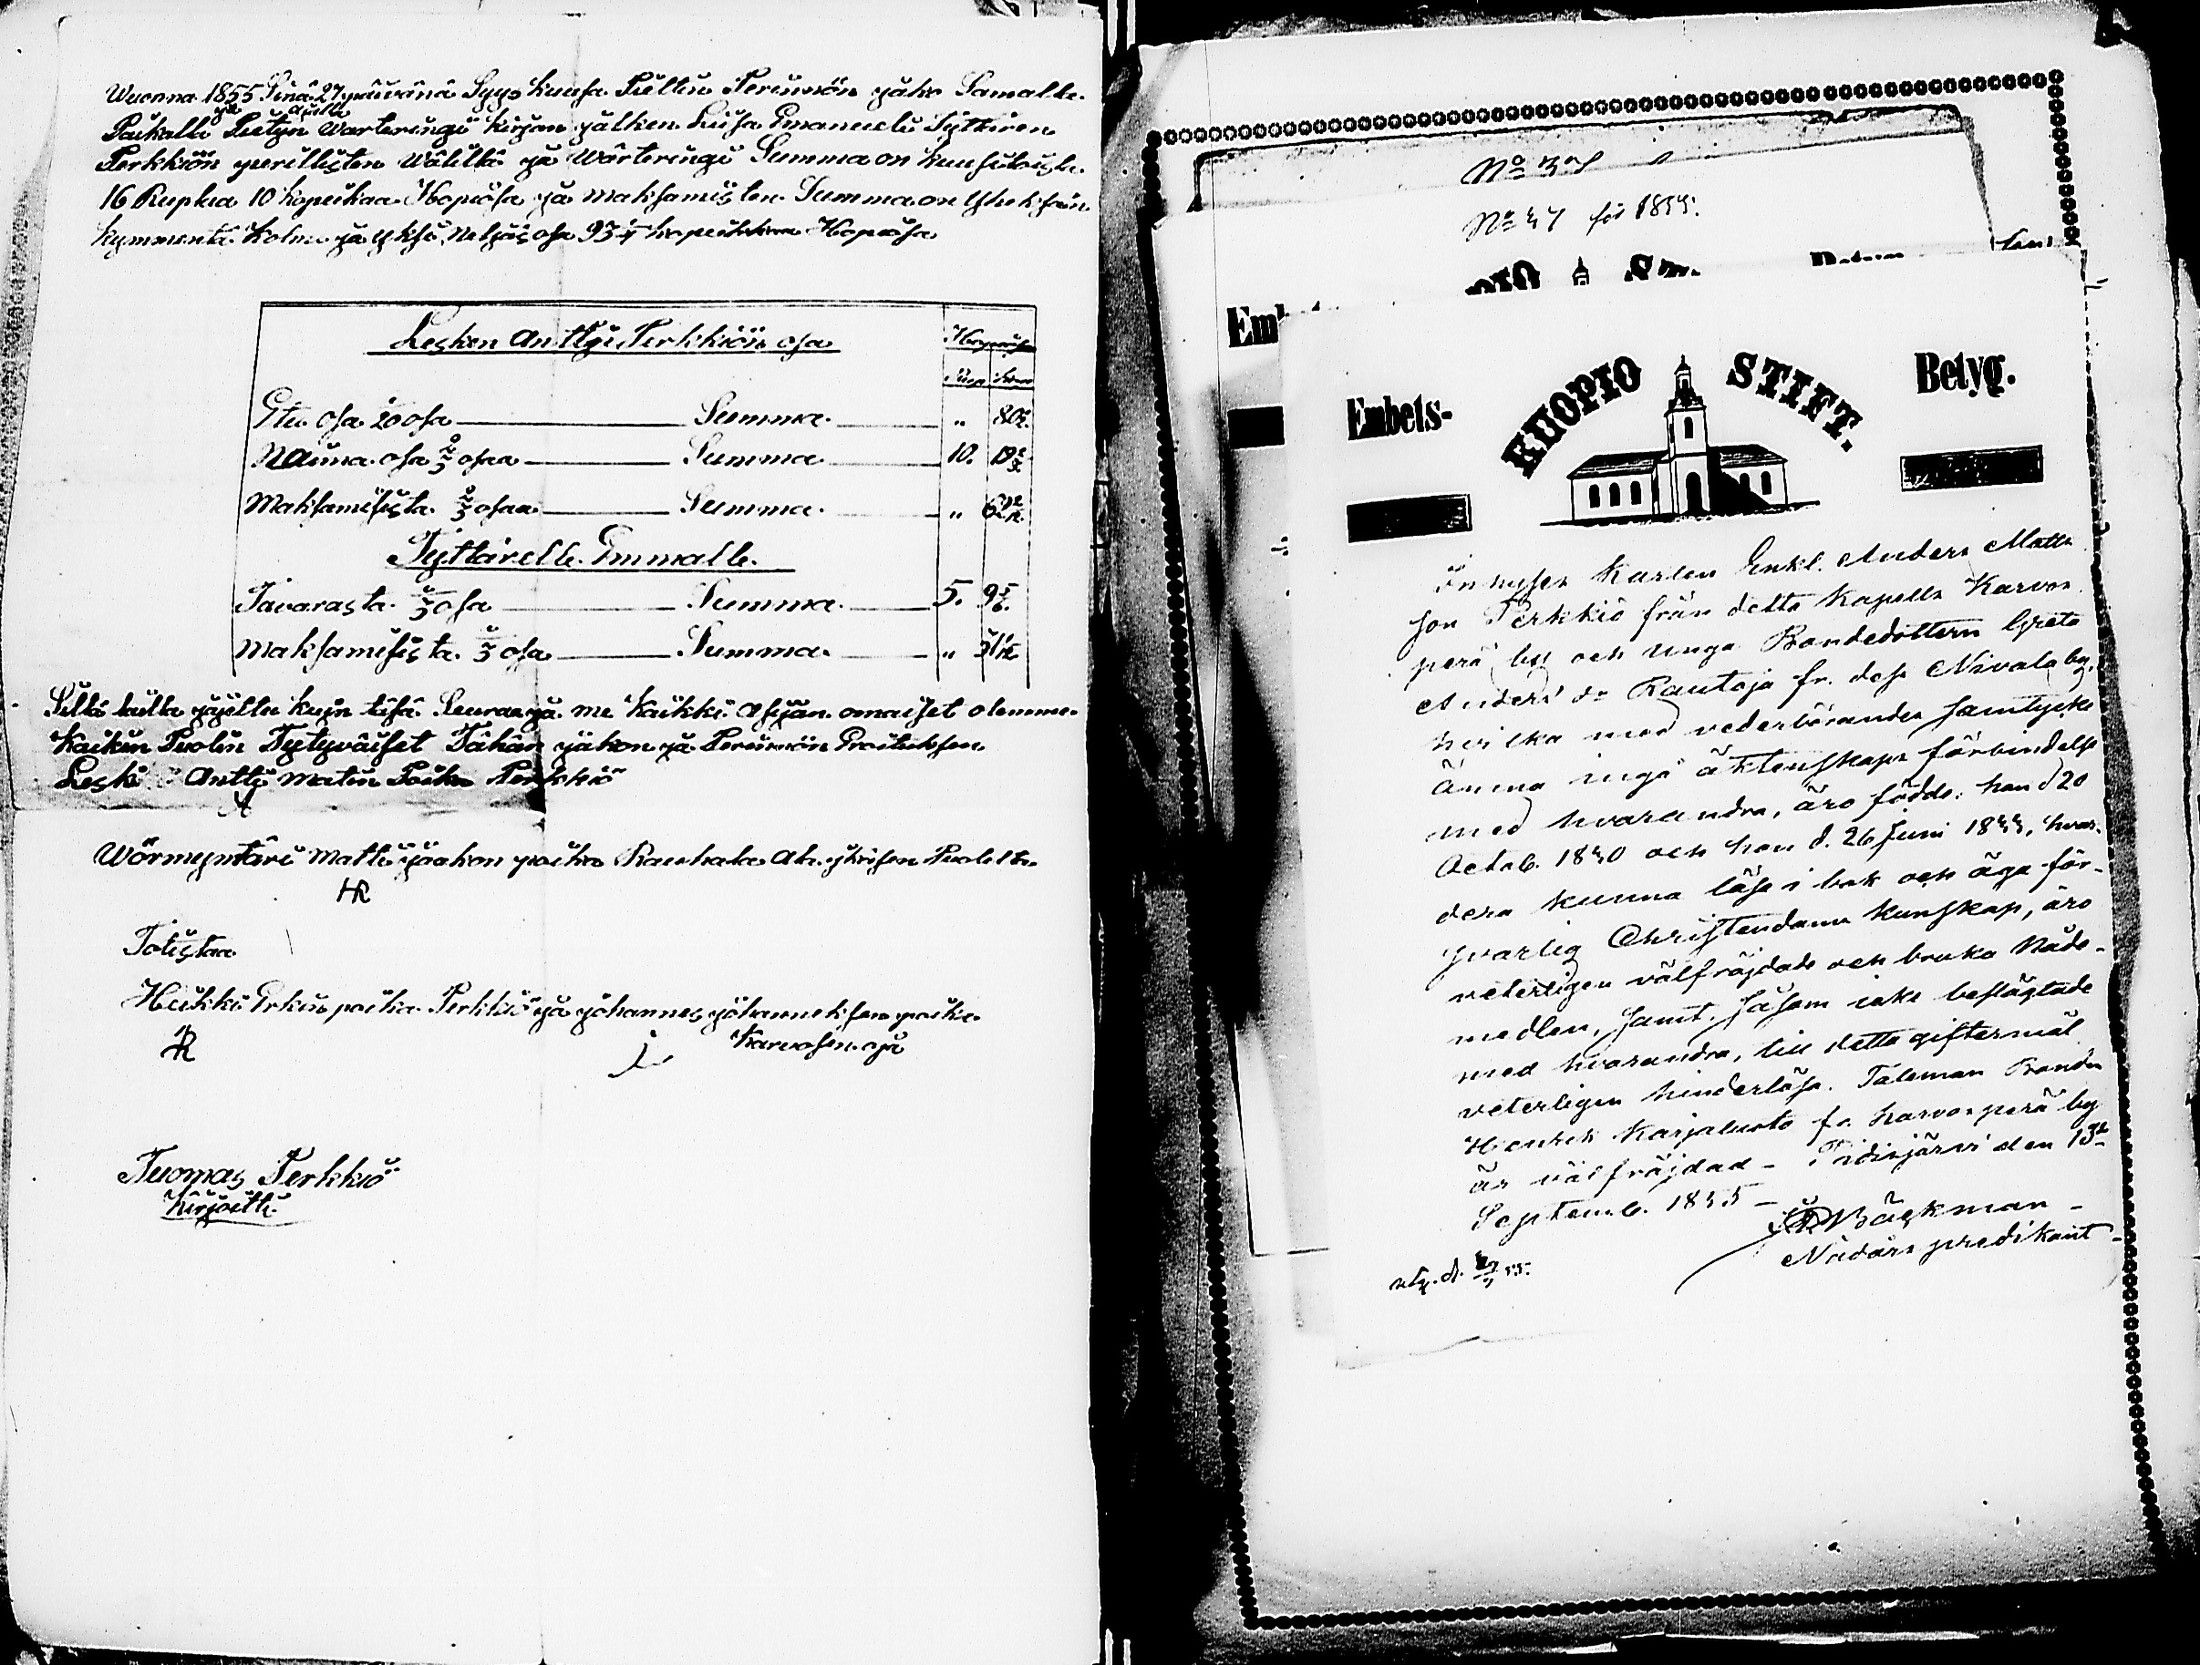 Wuonna 1855 Sinä 27 päivänä Syys kuusa Pittin Perinnön jako Samalla
Paikalla ja ajalla Tietyn Warteringi kirjan jälken Liisa Emanueli Tyttären
Perkkiön perillisten Wälillä ja Wärteringi Summa on kuusitoista
16 Ruplaa 10 kopeikaa Hopiasa ja maksamisten Summa on Yheksän
kymmentä kolme ja yksi neljäs osa 93 1/4 kopeikkaa Hopiasa
Lesken Anttji Perkkiön osa
Hopiasa
Rup kop
Etu osa 20 osa Summa " 80 1/2
Naima osa 2/3 osaa Summa 10. 19 2/3
Maksamisista 2/3 osaa Summa " 62 2/12
Tyttärelle Emmalle.
Tavarasta 1/3 osa Summa 5. 9 5/6
Maksamisista 1/3 osa Summa " 31 1/12
Sillä lailla jajettu kujn tisä Seuraa ja me kaikki asijan omaiset olemme
Kaikin Puolin Tytyväiset Tähän jakon ja Perinnön Eroituksen
Leski Anttji Matin Poika Perkkiö
Wörmyntäri Matti jaakon poika Rauhala Ala yhtisen Puolesta
HR
Totistaa
Heikki Erkin poika Perkkiö ja johannes johanneksen poika
Karvosen oja
Tuomas Perkkiö
Kirjoitti
No 47 för 1855.
Embets-
KUOPIO STIFT.
Betyg.
Inhyses Karlen Enkl. Anders Matts
son Perkkiö från detta Kapells Karvos
perä by och unga Bondedottern Greta
Anders dr Rautoja fr. dess Nivala by,
hvilka med vederbörandes samtycke
ämna ingå äktenskaps förbindelse
med hvarandra, äro födde: han d 20
Octob. 1830 och hon d. 26 Juni 1833, hvar-
dera kunna läsa i bok och äga för-
svarlig Christendoms kunskap, äro
veterligen välfräjdade och bruka Nåde-
medlen, samt, såsom icke beslägtade
med hvarandra, till detta giftermål
veterligen hinderlösa. Taleman Bonden
Henrik Karjaluoto fr. Karvosperä by
är välfräjdad - Pidisjärvi den 13de
Septemb. 1855 -
Bäckman -
Nådårs predikant